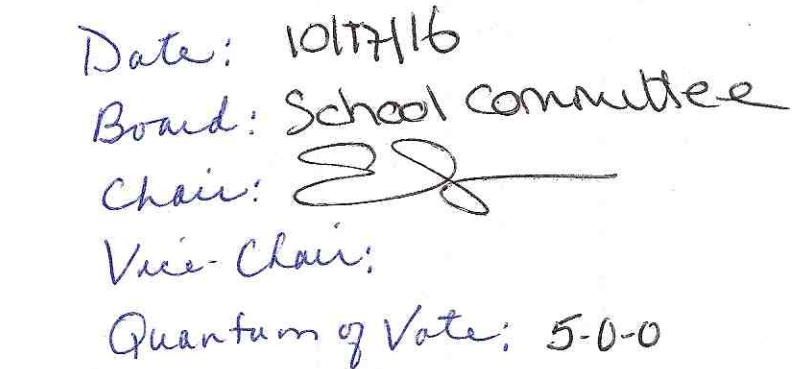 Date: 10/17/16
Board: School Committee
Chair:
Vice-Chair:
Quantum of Vote: 5-0-0